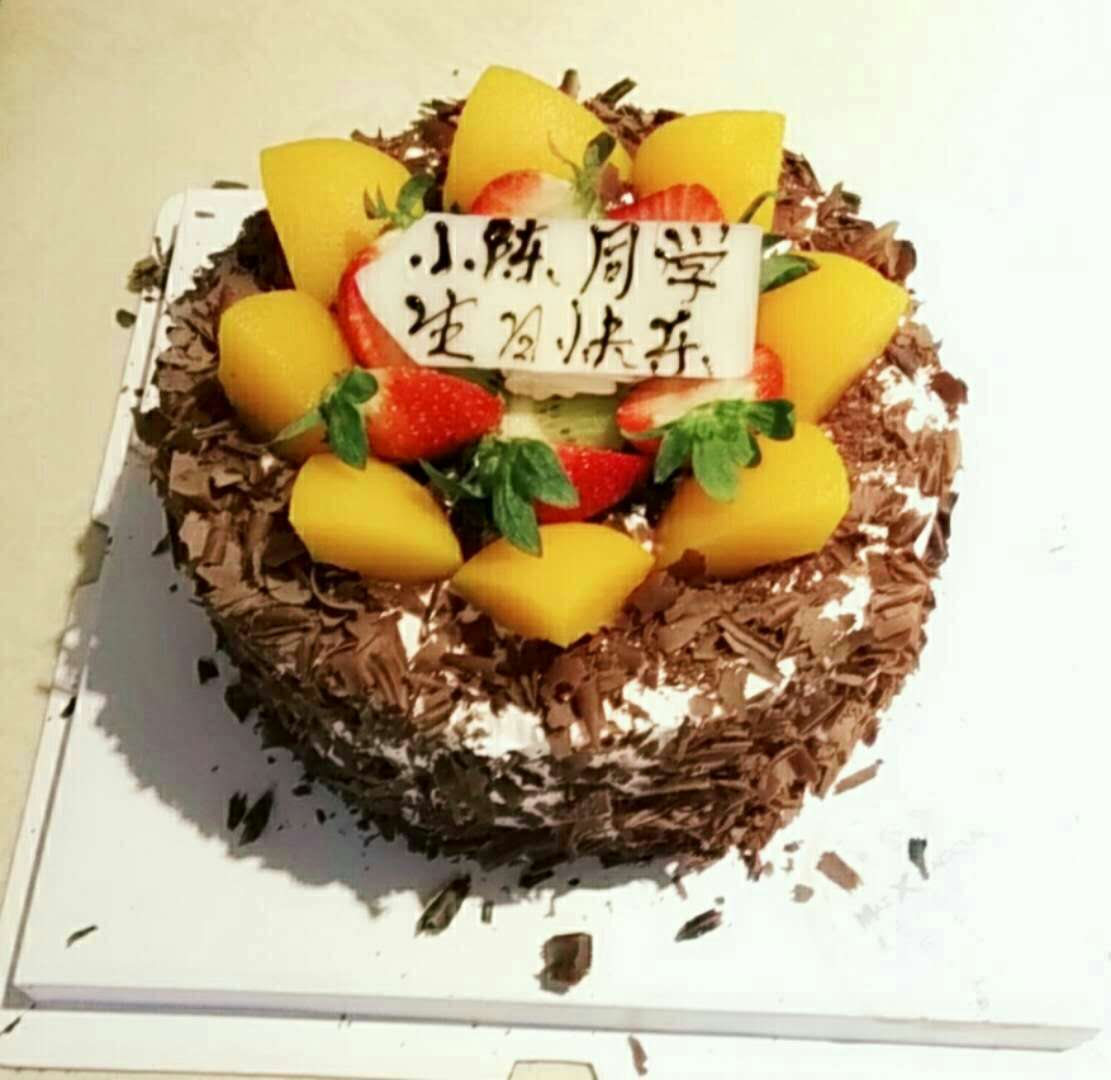 小陈同学
生日快乐